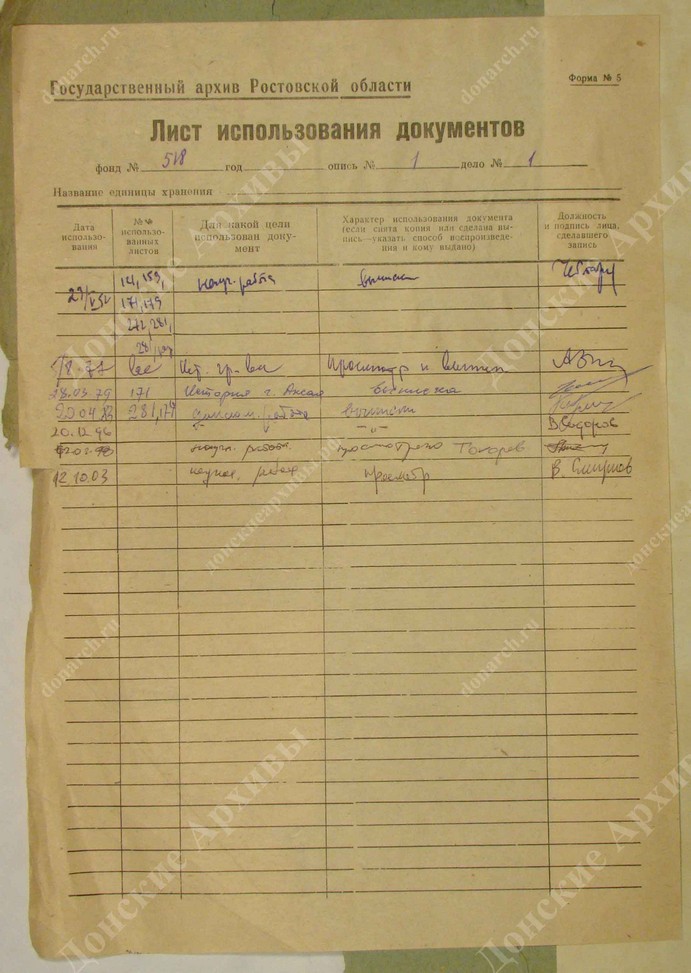 Государственный архив Ростовской области
Форма № 5
Лист использования документов
фонд № 518 год опись № 1 дело № 1
Название единицы хранения
Дата использования
№№ использованных листов
Для какой цели использован документ
Характер использования документа (если снята копия или сделана выпись—указать способ воспроизведения и кому выдано)
Должность и подпись лица, сделавшего запись
научн. работа выписки
171,179
272,281,
все Просмотр и
79 171 История г. Аксая выписка
20 04 281,179 работа выписки
20.12.96 -"- -"- В. Сидоров
научн. работа просмотрено Токарев
12.10.03 научн. работа просмотр В. Смирнов
Донские Архивы
donarch.ru
донскиеархивы.рф